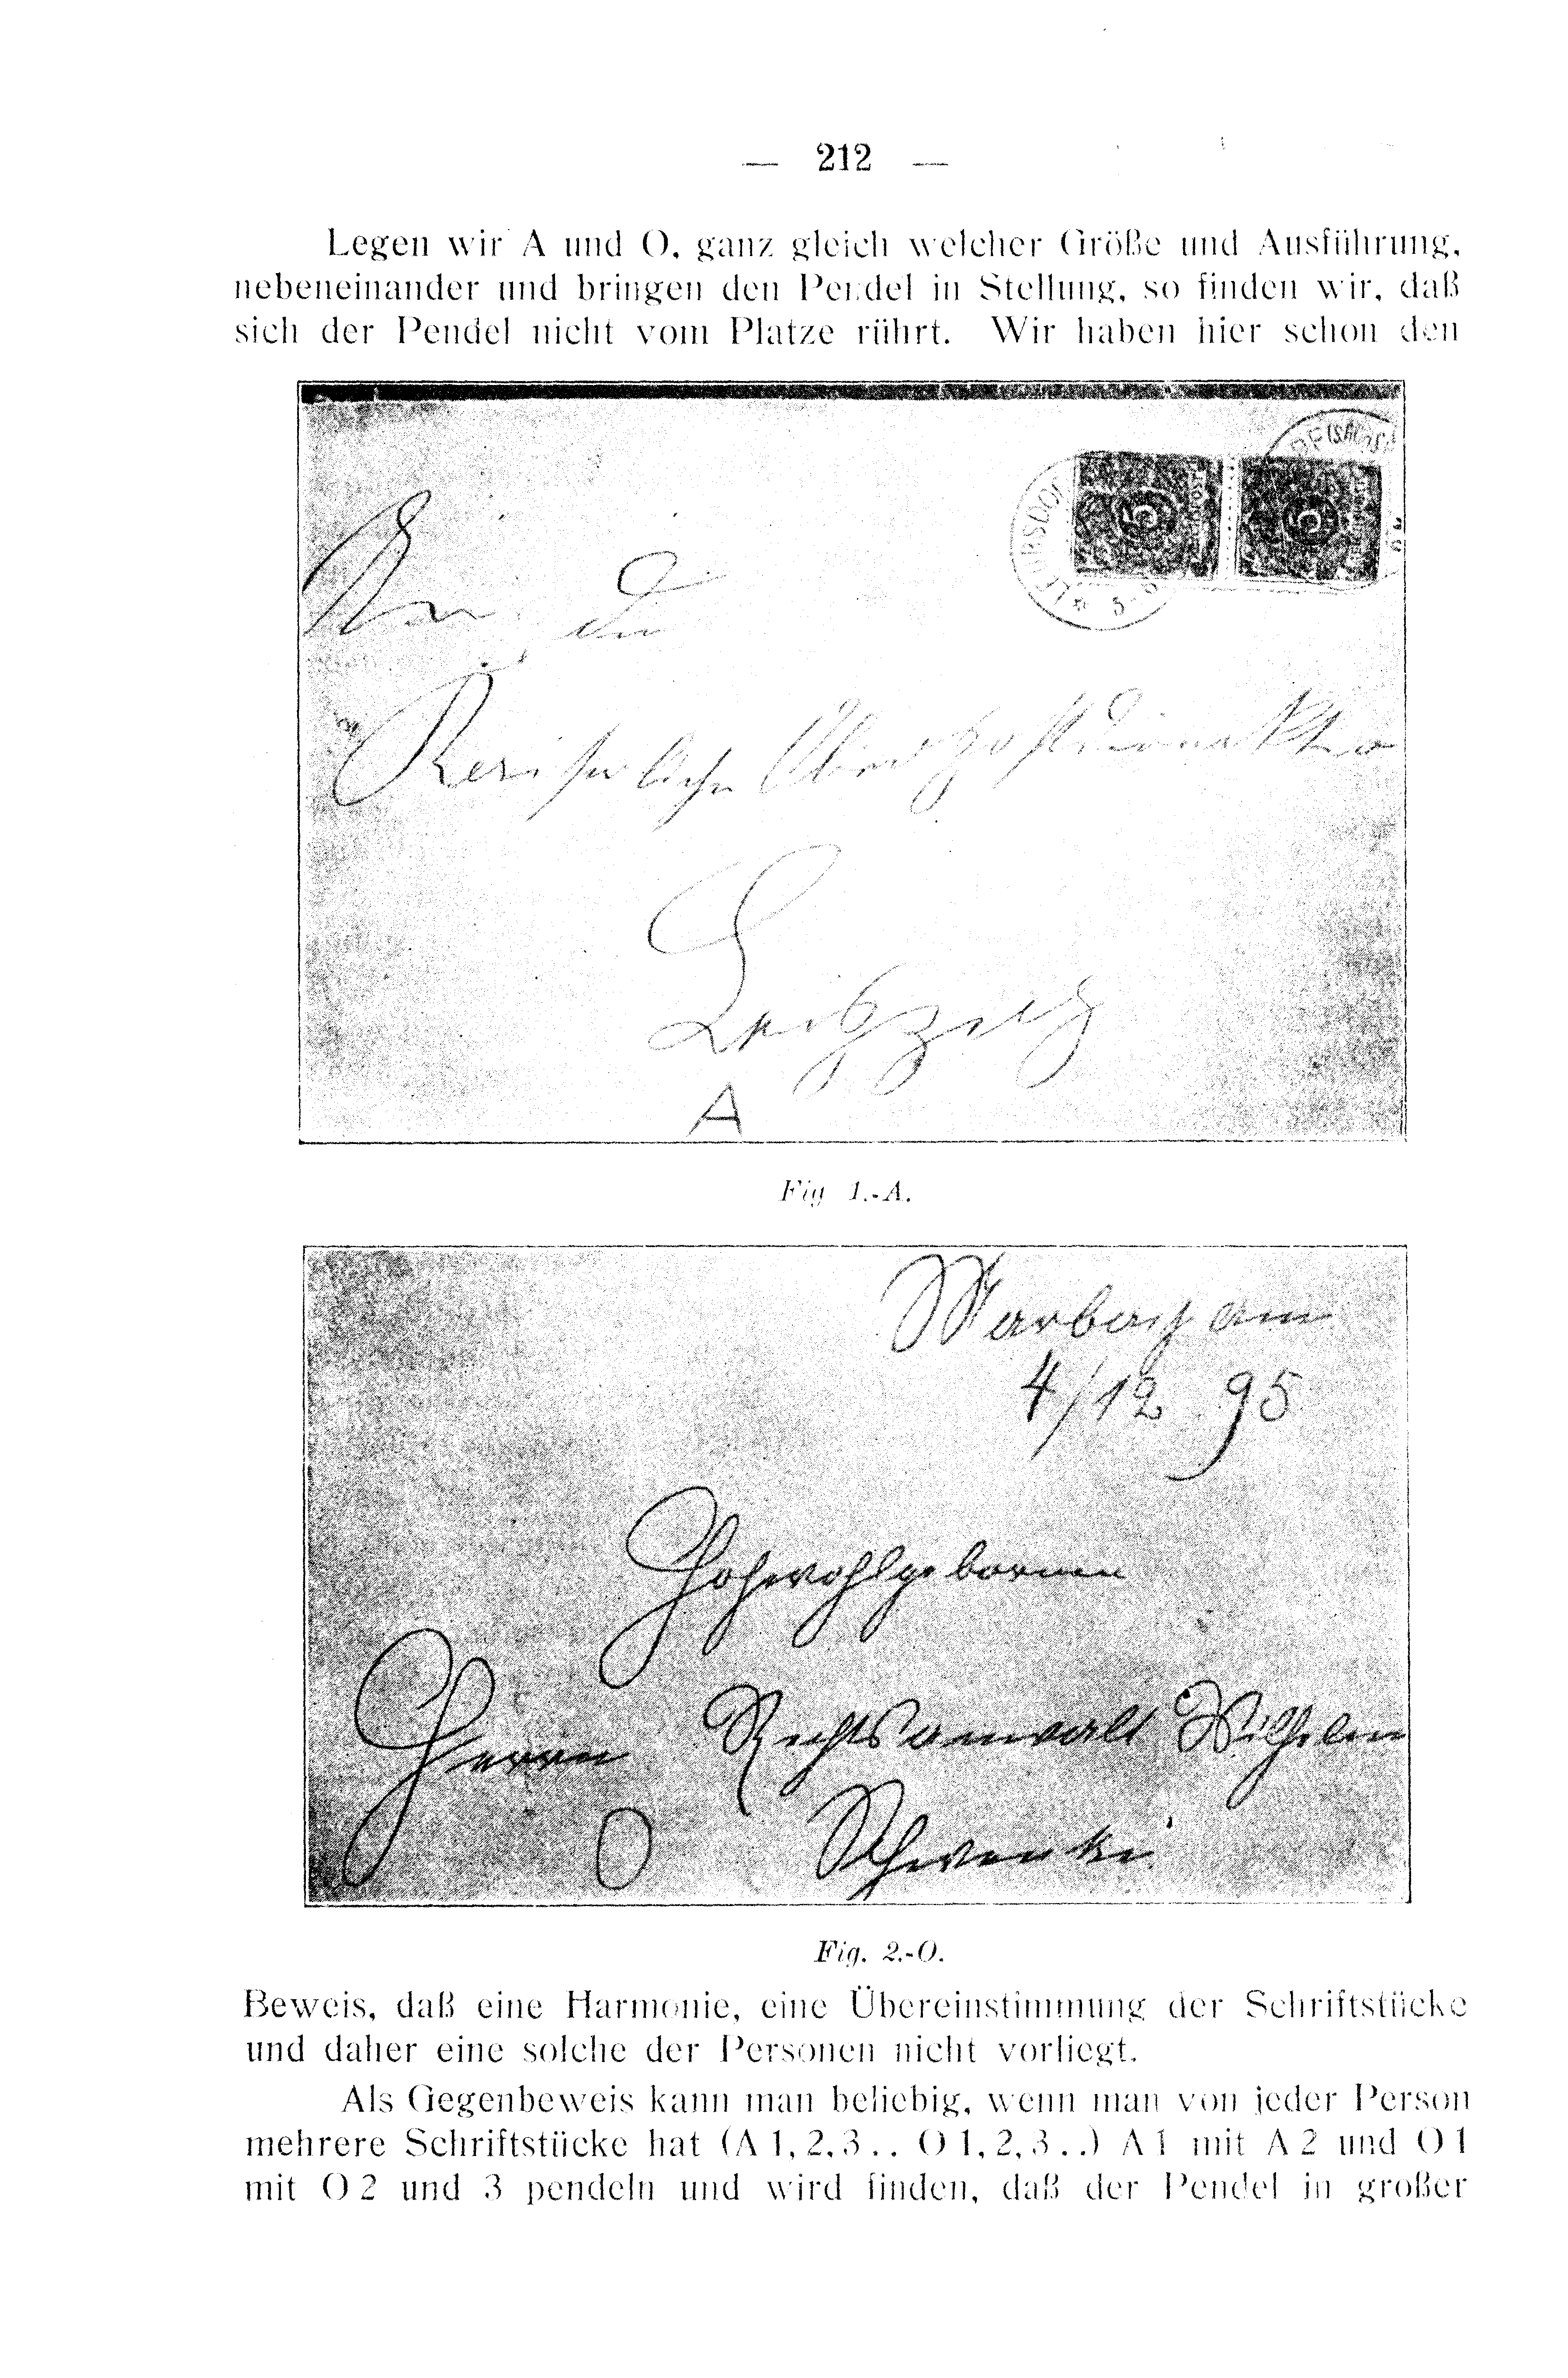 — 212 —
Legen wir A und O, ganz gleich welcher Größe und Ausführung,
nebeneinander und bringen den Pendel in Stellung, so finden wir, daß
sich der Pendel nicht vom Platze rührt. Wir haben hier schon den
5 5
An die
Kaiserliche Oberpostdirektio
Leipzig
A
Fig 1.-A.
Marburg am
4/12 95
Hochwohlgeboren
Herrn Rechtsanwalt Wilhelm
O
Fig. 2.-O.
Beweis, daß eine Harmonie, eine Übereinstimmung der Schriftstücke
und daher eine solche der Personen nicht vorliegt.
Als Gegenbeweis kann man beliebig, wenn man von jeder Person
mehrere Schriftstücke hat (A 1, 2, 3 . . O 1, 2, 3 . .) A 1 mit A 2 und O 1
mit O 2 und 3 pendeln und wird finden, daß der Pendel in großer